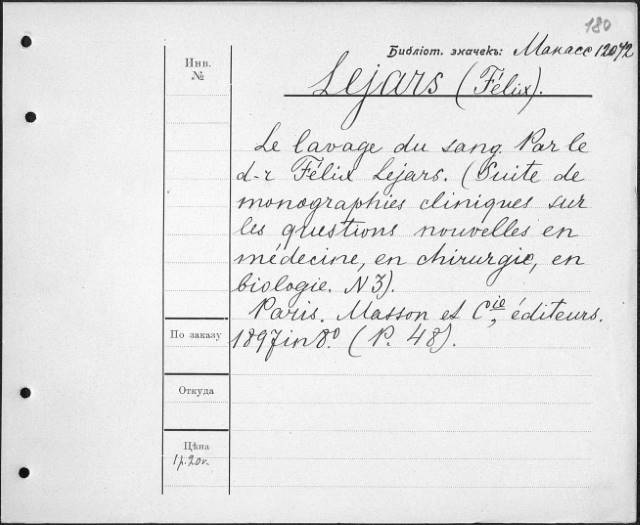 180
Библіот. значекъ: Манасс 12072
Инв.
№
Lejars (Félix).
Le lavage du sang. Par le
d-r Félix Lejars. (Suite de
monographies cliniques sur
les questions nouvelles en
médecine, en chirurgie, en
biologie. N 3).
Paris. Masson et Cie, éditeurs.
По заказу
1897 in 8º. (P. 48).
Откуда
Цѣна
1 р. 20 к.